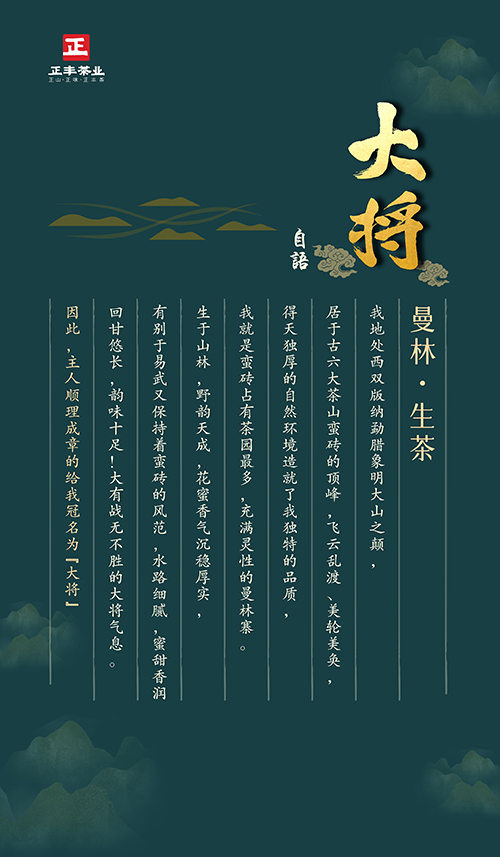 正
正丰茶业
正山·正味·正正茶
大将
自語
曼林·生茶
我地处西双版纳勐腊象明大山之颠，
居于古六大茶山蛮砖的顶峰，飞云乱渡、美轮美奂，
得天独厚的自然环境造就了我独特的品质，
我就是蛮砖占有茶园最多，充满灵性的曼林寨。
生于山林，野韵天成，花蜜香气沉稳厚实，
有别于易武又保持着蛮砖的风范，水路细腻，蜜甜香润
回甘悠长，韵味十足！大有战无不胜的大将气息。
因此，主人顺理成章的给我冠名为『大将』